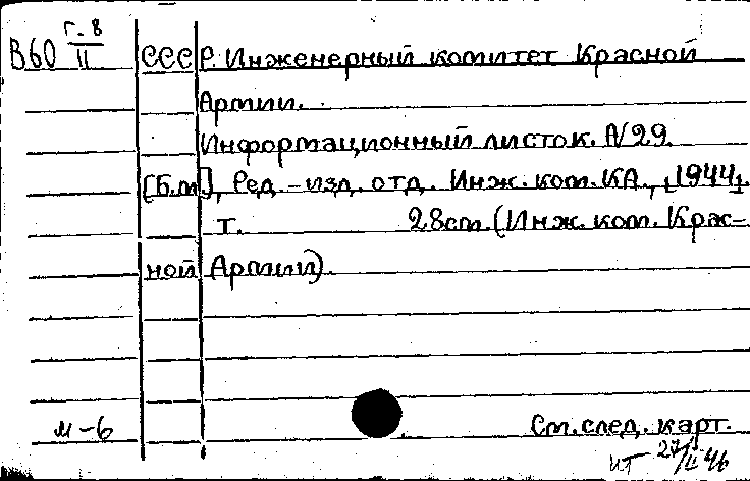 В60 Г-8/II СССР. Инженерный комитет Красной
Армии.
Информационный листок. №29.
[Б.м.], Ред.-изд. отд. Инж. ком. КА, [1944].
т. 28см. (Инж. ком. Крас-
ной Армии).
м-6 См. след. карт.
27/II 46